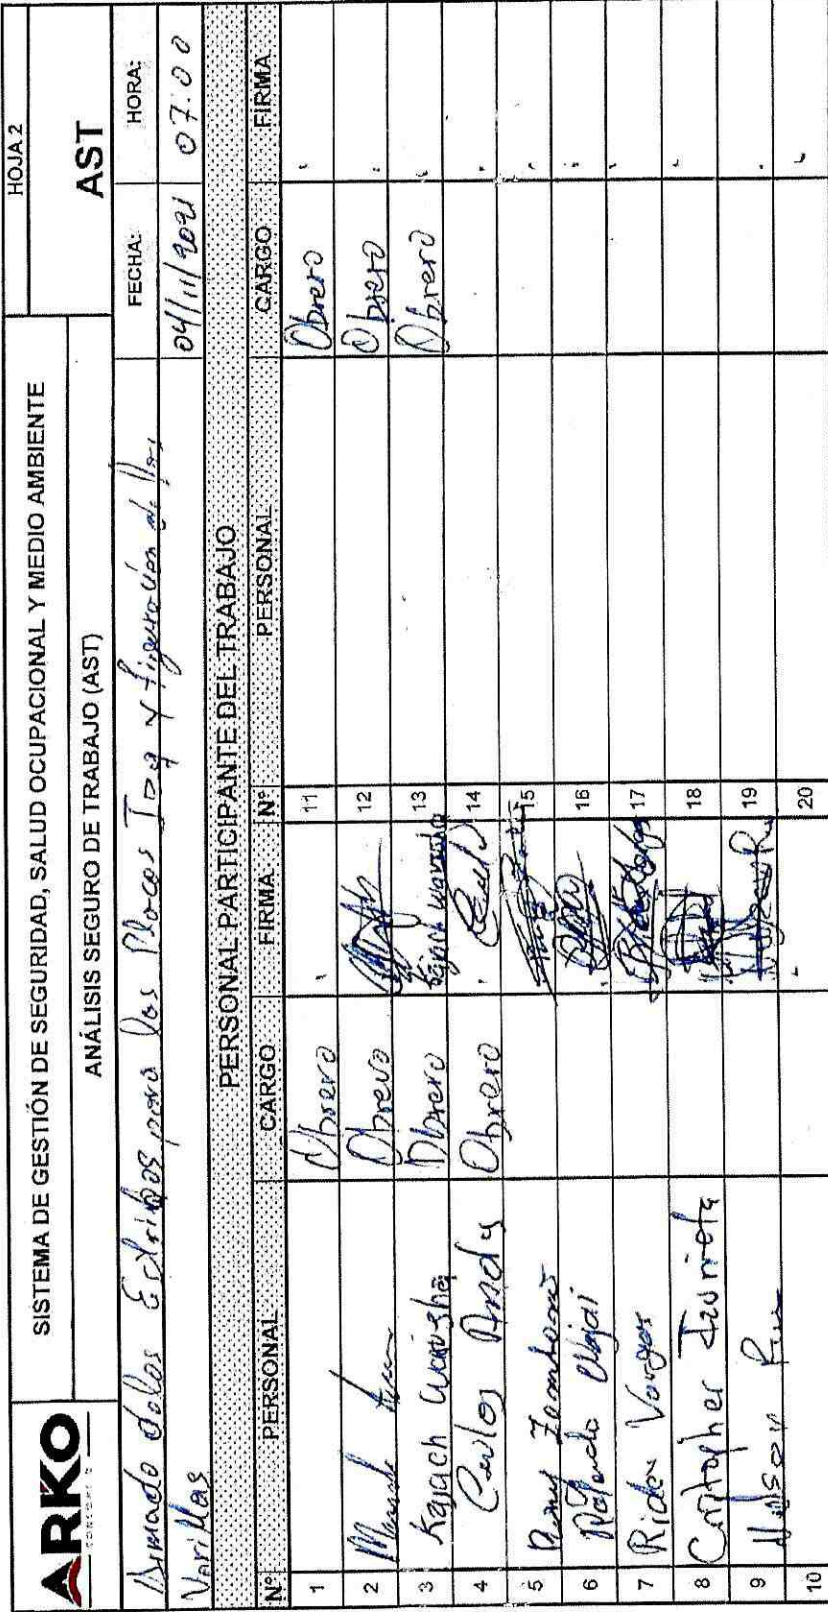 ARKO
SISTEMA DE GESTIÓN DE SEGURIDAD, SALUD OCUPACIONAL Y MEDIO AMBIENTE
HOJA 2
ANÁLISIS SEGURO DE TRABAJO (AST)
AST
Armado de los Estribos para los Plocos y figuración de las
FECHA:
HORA:
Varillas
04/11/2021
07:00
PERSONAL PARTICIPANTE DEL TRABAJO
N° PERSONAL CARGO FIRMA N° PERSONAL CARGO FIRMA
1 Obrero 11 Obrero
2 Obrero 12 Obrero
3 Kajach Warusha Obrero Kajach Warusha 13 Obrero
4 Carlos Andy Obrero 14
5 Zambrano 15
6 16
7 Rider Vargas 17
8 Cristopher 18
9 Nelson 19
10 20